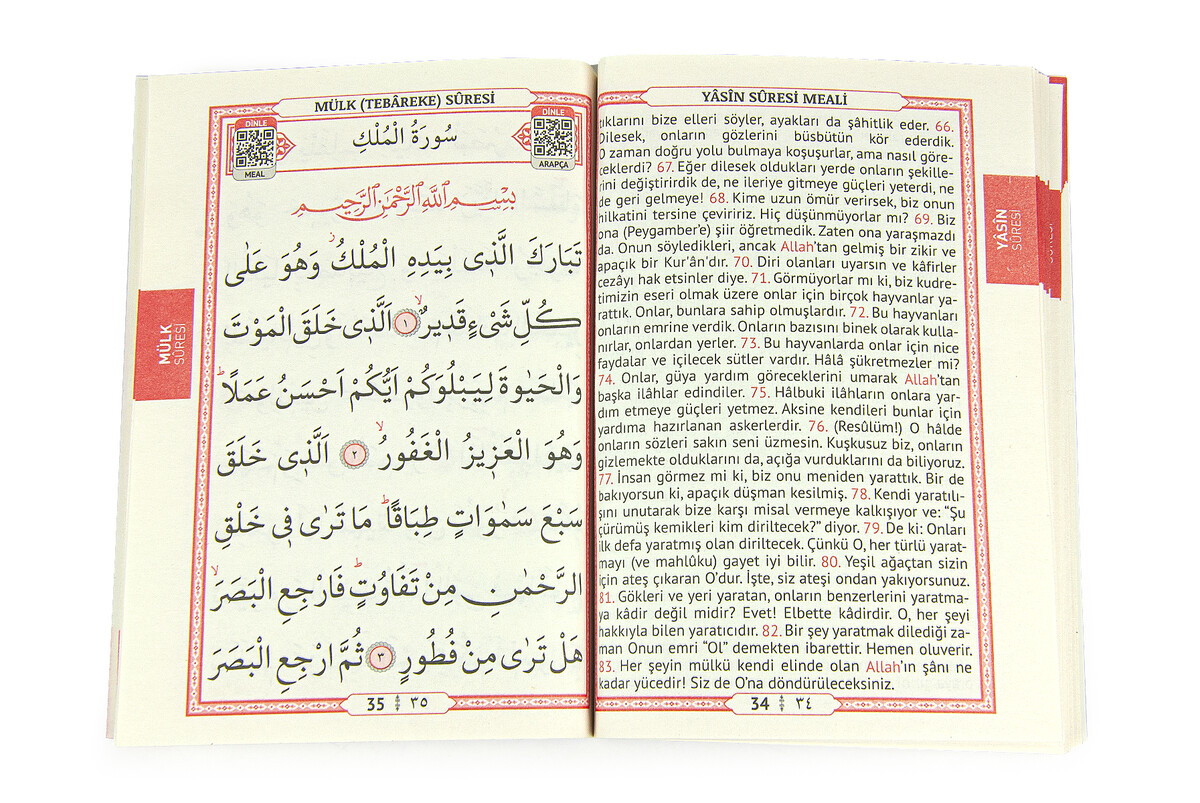 YÂSÎN SÛRESİ MEALİ
bize elleri söyler, ayakları da şâhitlik eder. 66.
Dilesek, onların gözlerini büsbütün kör ederdik.
O zaman doğru yolu bulmaya koşuşurlar, ama nasıl göre-
ceklerdi? 67. Eğer dilesek oldukları yerde onların şekille-
rini değiştirirdik de, ne ileriye gitmeye güçleri yeterdi, ne
de geri gelmeye! 68. Kime uzun ömür verirsek, biz onun
hilkatini tersine çeviririz. Hiç düşünmüyorlar mı? 69. Biz
ona (Peygamber’e) şiir öğretmedik. Zaten ona yaraşmazdı
da. Onun söyledikleri, ancak Allah’tan gelmiş bir zikir ve
apaçık bir Kur'ân'dır. 70. Diri olanları uyarsın ve kâfirler
cezâyı hak etsinler diye. 71. Görmüyorlar mı ki, biz kudre-
timizin eseri olmak üzere onlar için birçok hayvanlar ya-
rattık. Onlar, bunlara sahip olmuşlardır. 72. Bu hayvanları
onların emrine verdik. Onların bazısını binek olarak kulla-
nırlar, onlardan yerler. 73. Bu hayvanlarda onlar için nice
faydalar ve içilecek sütler vardır. Hâlâ şükretmezler mi?
74. Onlar, güya yardım göreceklerini umarak Allah’tan
başka ilâhlar edindiler. 75. Hâlbuki ilâhların onlara yar-
dım etmeye güçleri yetmez. Aksine kendileri bunlar için
yardıma hazırlanan askerlerdir. 76. (Resûlüm!) O hâlde
onların sözleri sakın seni üzmesin. Kuşkusuz biz, onların
gizlemekte olduklarını da, açığa vurduklarını da biliyoruz.
77. İnsan görmez mi ki, biz onu meniden yarattık. Bir de
bakıyorsun ki, apaçık düşman kesilmiş. 78. Kendi yaratılı-
şını unutarak bize karşı misal vermeye kalkışıyor ve: “Şu
çürümüş kemikleri kim diriltecek?” diyor. 79. De ki: Onları
ilk defa yaratmış olan diriltecek. Çünkü O, her türlü yarat-
mayı (ve mahlûku) gayet iyi bilir. 80. Yeşil ağaçtan sizin
için ateş çıkaran O’dur. İşte, siz ateşi ondan yakıyorsunuz.
81. Gökleri ve yeri yaratan, onların benzerlerini yaratma-
ya kâdir değil midir? Evet! Elbette kâdirdir. O, her şeyi
hakkıyla bilen yaratıcıdır. 82. Bir şey yaratmak dilediği za-
man Onun emri “Ol” demekten ibarettir. Hemen oluverir.
83. Her şeyin mülkü kendi elinde olan Allah’ın şânı ne
kadar yücedir! Siz de O’na döndürüleceksiniz.
34 ٣٤
YÂSÎN
SÛRESİ
MÜLK (TEBÂREKE) SÛRESİ
DİNLE
MEAL
سُورَةُ الْمُلْكِ
DİNLE
ARAPÇA
بِسْمِ اللّٰهِ الرَّحْمٰنِ الرَّحِيمِ
تَبَارَكَ الَّذ۪ي بِيَدِهِ الْمُلْكُۘ وَهُوَ عَلٰى
كُلِّ شَيْءٍ قَد۪يرٌۙ ١ اَلَّذ۪ي خَلَقَ الْمَوْتَ
وَالْحَيٰوةَ لِيَبْلُوَكُمْ اَيُّكُمْ اَحْسَنُ عَمَلًاۜ
وَهُوَ الْعَز۪يزُ الْغَفُورُۙ ٢ اَلَّذ۪ي خَلَقَ
سَبْعَ سَمٰوَاتٍ طِبَاقًاۜ مَا تَرٰى ف۪ي خَلْقِ
الرَّحْمٰنِ مِنْ تَفَاوُتٍۜ فَارْجِعِ الْبَصَرَۙ
هَلْ تَرٰى مِنْ فُطُورٍ ٣ ثُمَّ ارْجِعِ الْبَصَرَ
35 ٣٥
MÜLK
SÛRESİ